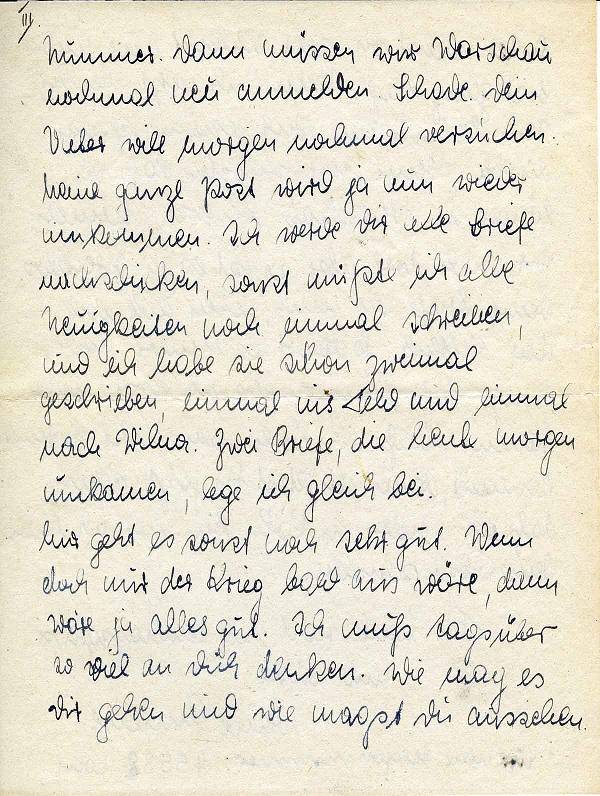 III.
Nummer. Dann müssen wir Warschau
nochmal neu anmelden. Schade. Dein
Vater will morgen nochmal versuchen.
Meine ganze Post wird ja nun wieder
umkommen. Ich werde dir alle Briefe
nachschicken, sonst müßte ich alle
Neuigkeiten noch einmal schreiben,
und ich habe sie schon zweimal
geschrieben, einmal ins Feld und einmal
nach Wilna. Zwei Briefe, die heute morgen
ankamen, lege ich gleich bei.
geht es sonst noch sehr gut. Wenn
doch nur der Krieg bald aus wäre, dann
wäre ja alles gut. Ich muß tagsüber
so viel an dich denken. Wie mag es
dir gehen und wie magst du aussehen.